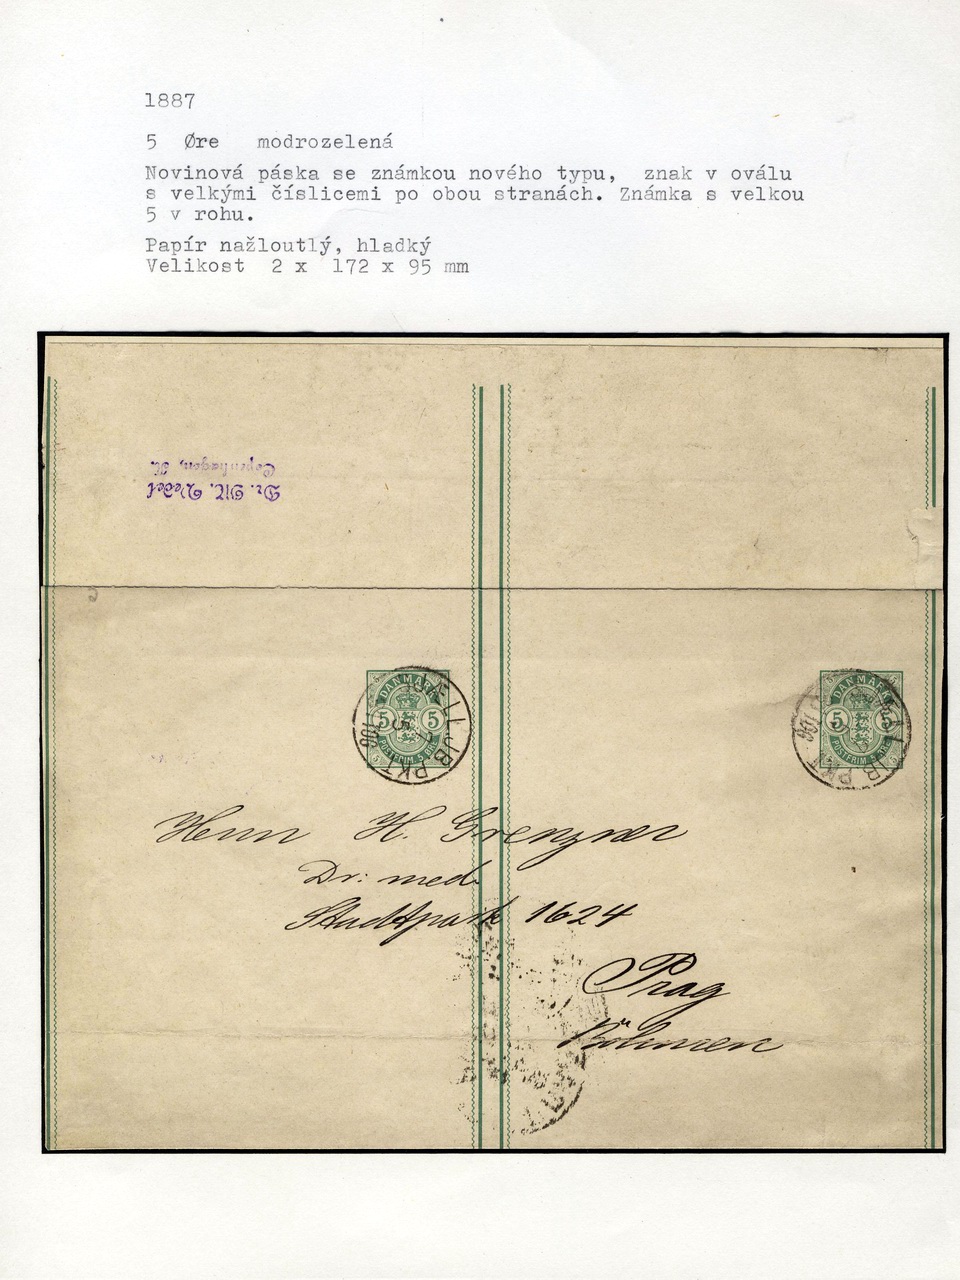 1887
5 Øre modrozelená
Novinová páska se známkou nového typu, znak v oválu
s velkými číslicemi po obou stranách. Známka s velkou
5 v rohu.
Papír nažloutlý, hladký
Velikost 2 x 172 x 95 mm
Dr. M. Vedel
Copenhagen, K.
DANMARK
5 5
POSTFRIM. 5 ØRE
DANMARK
5 5
POSTFRIM. 5 ØRE
Herrn H. Grenzner
Dr: med.
Stadtpark 1624
Prag
Böhmen